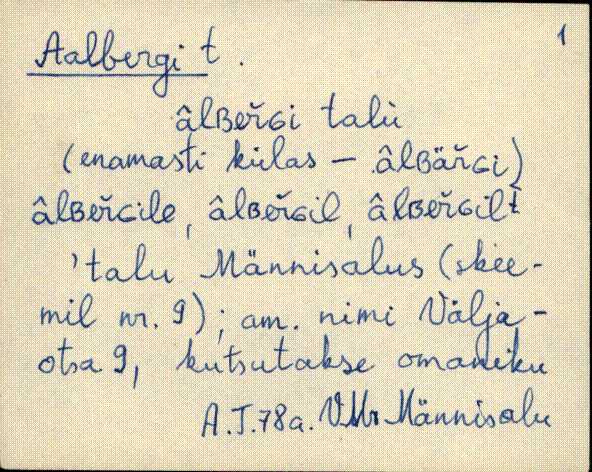 Aalbergi t. 1
âlʙeř̆ɢi talù
(enamasti külas – âlʙäř̆ɢi)
âlʙeř̆ɢile, âlʙeř̆ɢil, âlʙeř̆ɢilt
'talu Männisalus (skee-
mil nr. 9); am. nimi Välja-
otsa 9, kutsutakse omaniku
A.T.78a. VMr Männisalu